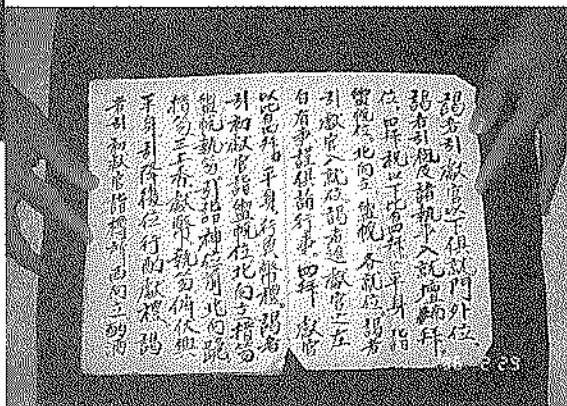 謁者引獻官以下俱就門外位
謁者引祝及諸執事入就壇南拜
位四拜祝以下皆四拜 平身 詣
盥帨位北向立 盥帨 各就位 謁者
引獻官入就位謁者進獻官之左
白有事謹俱請行事 四拜 獻官
以下皆四拜平身行奠幣禮 謁者
引初獻官詣盥帨位北向立搢笏
盥帨執笏引詣神位前北向跪
搢笏三上香獻幣執笏俯伏興
平身引降復位行酌獻禮 謁
者引初獻官詣樽所西向立酌酒